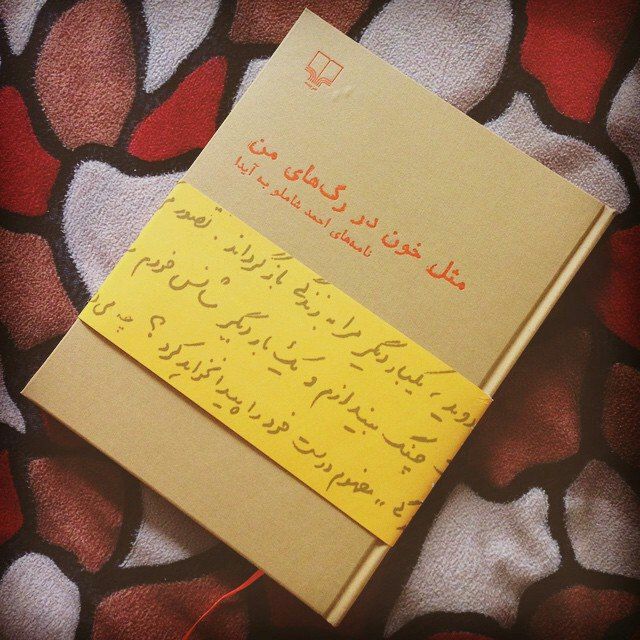 مثل خون در رگ‌های من
نامه‌های احمد شاملو به آیدا
یکبار دیگر مرا به زندگی بازگرداند. تصور
چنگ بیندازم و یک بار دیگر شانس خودم
مفهوم درست خود را پیدا نخواهد کرد؟ چه